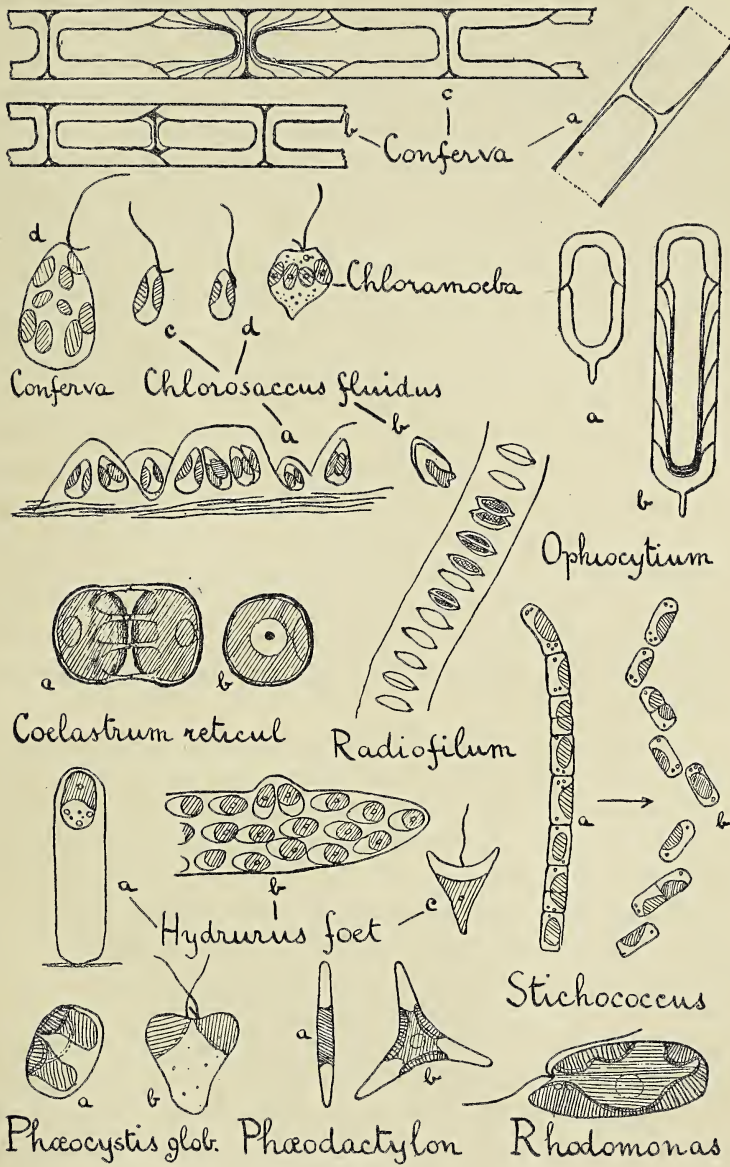 c
b
Conferva
a
d
Chloramoeba
c
d
Conferva
Chlorosaccus fluidus
a
b
a
b
Ophiocytium
a
b
Coelastrum reticul
Radiofilum
a
b
a
b
c
Hydrurus foet
Stichococcus
a
b
a
b
Phæocystis glob.
Phæodactylon
Rhodomonas